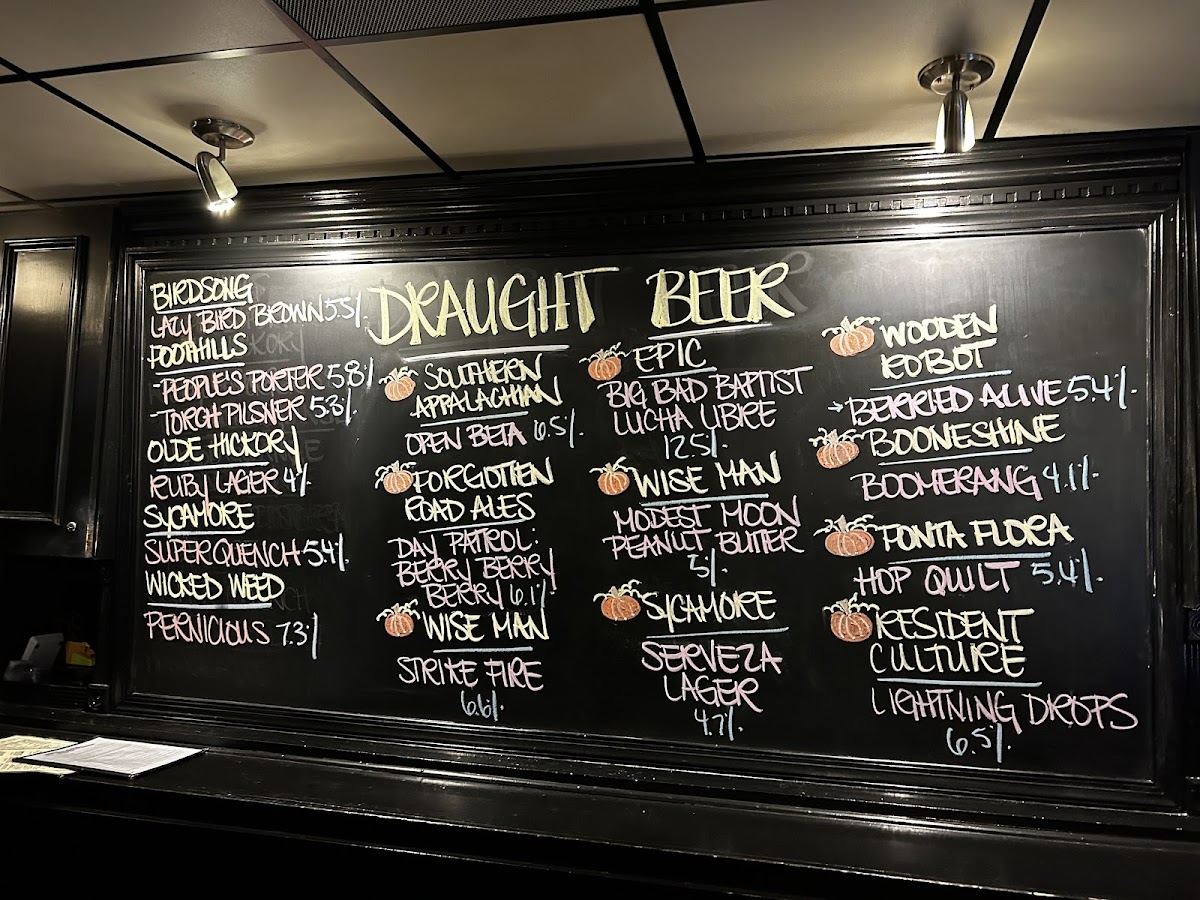 DRAUGHT BEER
BIRDSONG
LAZY BIRD BROWN 5.5%
FOOTHILLS
-PEOPLE'S PORTER 5.8%
-TORCH PILSNER 5.3%
OLDE HICKORY
RUBY LAGER 4%
SYCAMORE
SUPER QUENCH 5.4%
WICKED WEED
PERNICIOUS 7.3%
SOUTHERN
APPALACHIAN
OPEN BETA 6.5%
FORGOTTEN
ROAD ALES
DAY PATROL:
BERRY BERRY
BERRY 6.1%
WISE MAN
STRIKE FIRE
6.6%
EPIC
BIG BAD BAPTIST
LUCHA LIBRE
12.5%
WISE MAN
MODEST MOON
PEANUT BUTTER
5%
SYCAMORE
SERVEZA
LAGER
4.7%
WOODEN
ROBOT
→BERRIED ALIVE 5.4%
BOONESHINE
BOOMERANG 4.1%
FONTA FLORA
HOP QUILT 5.4%
RESIDENT
CULTURE
LIGHTNING DROPS
6.5%